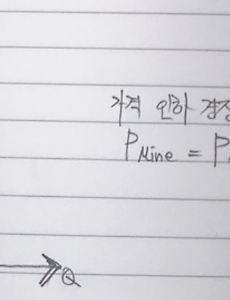 가격 인하 경쟁
P Mine = P
Q